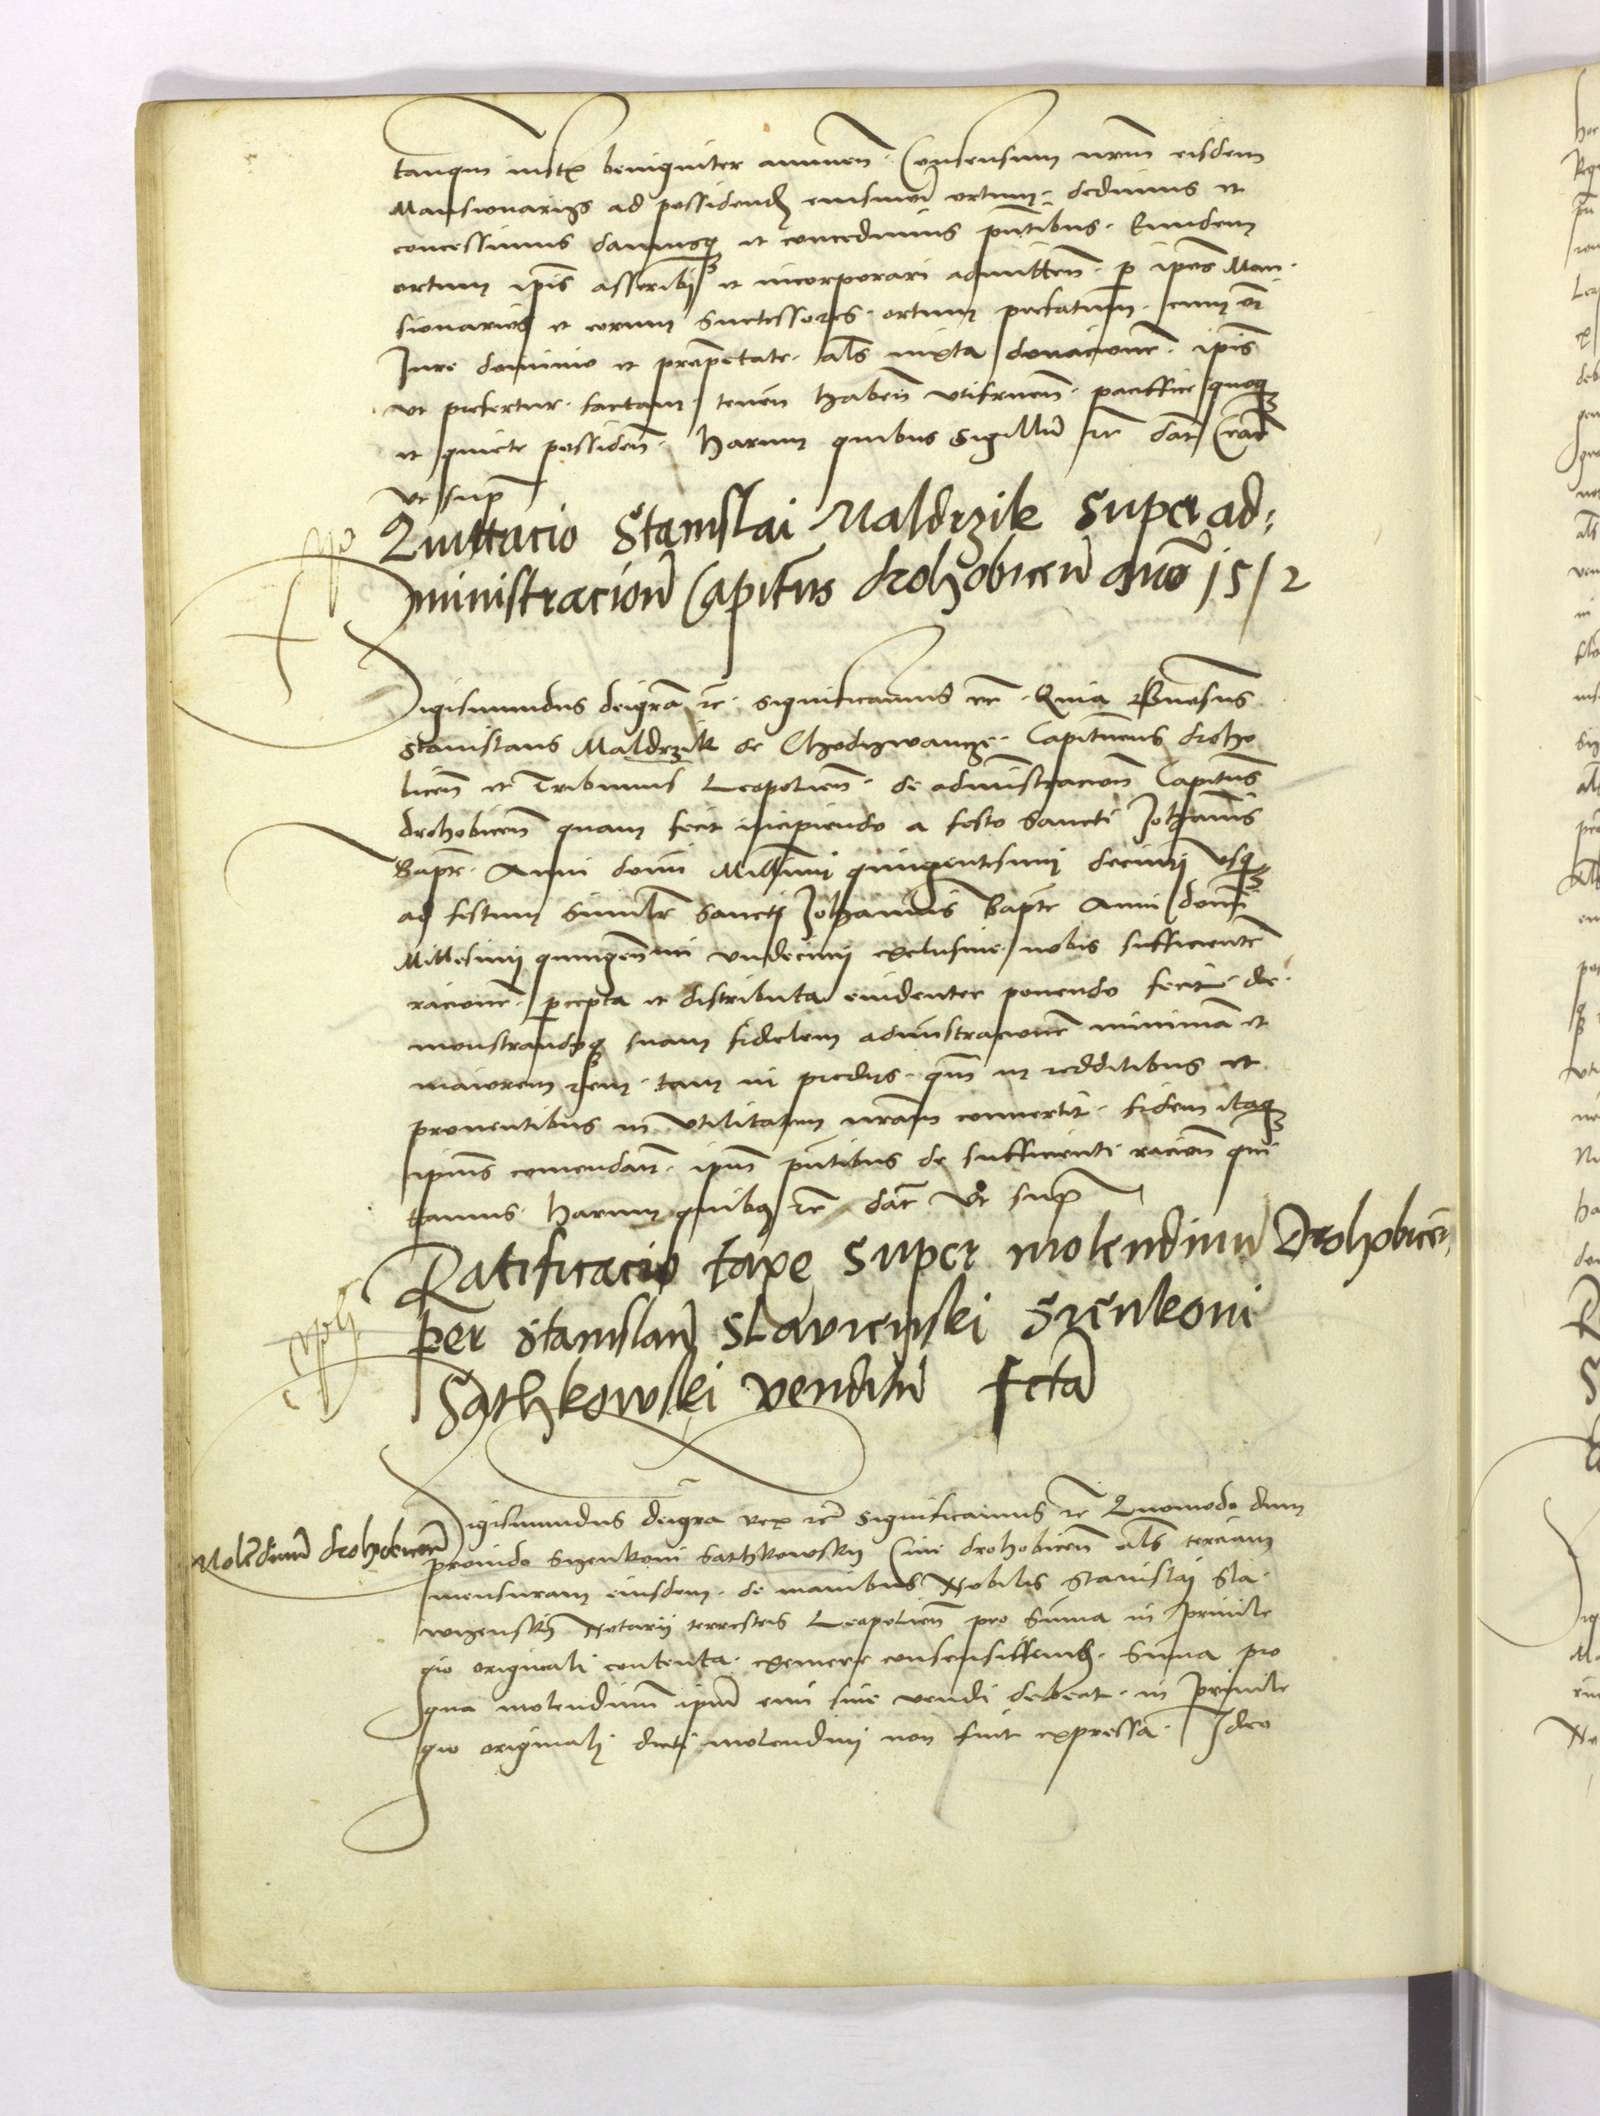 tanqm iustis benigniter annuen. Consensum nrm eisdem
Mansionarys ad possidend eiusmodi ortum dedimus et
concessimus damusq et concedimus pntibus. Eundem
ortum ipis asscribi et incorporari admitten. p ipos Man
sionarios et eorum Successores ortum prefatum cum oi
Jure dominio et proprietate als iuxta donacionem ipis
ut prefertur factam tenen haben utifruen paciffice quoq
et quiete possiden. Harum quibus Sigillu etc dat Crac
ut supra
Quittacio Stanislai Maldrzik super ad=
ministracione Capitus drohobicen Anno 1512
Sigismundus dei gra etc significamus etc Quia Gnosus
Stanislaus Maldrzik de Chodzwanye Capitneus droho
bicen et Tribunus Leopolien de administracion Capitus
drohobicen quam fecit incipiendo a festo Sancti Johannis
Bapte Anni domini Millimi quingentesimi decimi usq
ad festum similr Sancti Johannis Bapte Anni domini
Millesimi quingenmi undecimi exclusive nobis sufficientem
racionem percepta et distributa evidenter ponendo fecit de
monstrandoq suam fidelem administracionem minima et
maiorem rem tam in predys qm in redditibus et
proventibus in utilitatem nram convertit fidem itaq
ipius comendan ipm pntibus de sufficienti racion qui
tamus Harum quibus etc dat ut supra
Ratificacio taxe super molendinu Drohobicen
per Stanislau Slavienski Sienkoni
Sathkowski venditu fcta
Sigismundus dei gra rex etc Significamus etc Quomodo dum
Molendinu drohobicen
provido Syenkoni Sathkowsky Civi drohobicen als terciam
mensuram eiusdem de manibus Nobilis Stanislai Sla
wyensky Notarii terrestris Leopolien pro Suma in privile
gio originali contenta exemere consensissemus Suma pro
qua molendinum ipm emi sive vendi debeat in privile
gio originali dicti molendini non fuit expressa Ideo